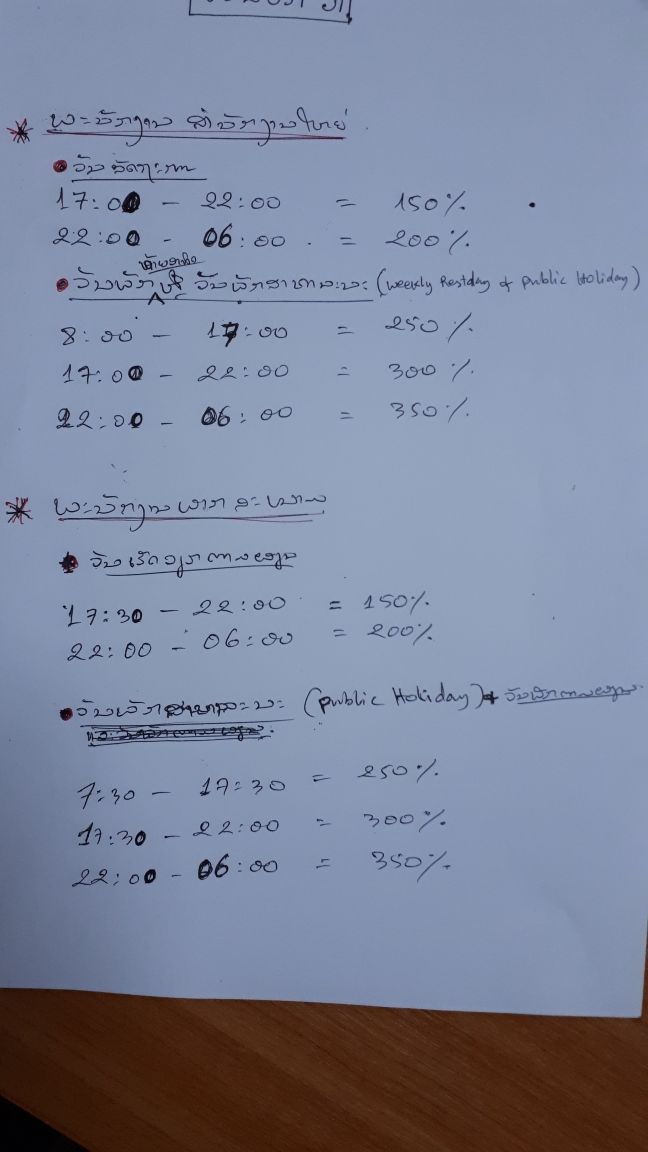 * ພະນັກງານ ສຳນັກງານໃຫຍ່
• ວັນລັດຖະການ
17:00 - 22:00 = 150%
22:00 - 06:00 = 200%
ທ້າຍອາທິດ
• ວັນພັກ ຫຼື ວັນພັກສາທາລະນະ (weekly Restday & public Holiday)
8:00 - 17:00 = 250%
17:00 - 22:00 = 300%
22:00 - 06:00 = 350%
* ພະນັກງານ ພາກສະໜາມ
• ວັນເຮັດວຽກຕາມວຽນ
17:30 - 22:00 = 150%
22:00 - 06:00 = 200%
• ວັນພັກສາທາລະນະ (public Holiday) + ວັນພັກຕາມວຽນ
7:30 - 17:30 = 250%
17:30 - 22:00 = 300%
22:00 - 06:00 = 350%